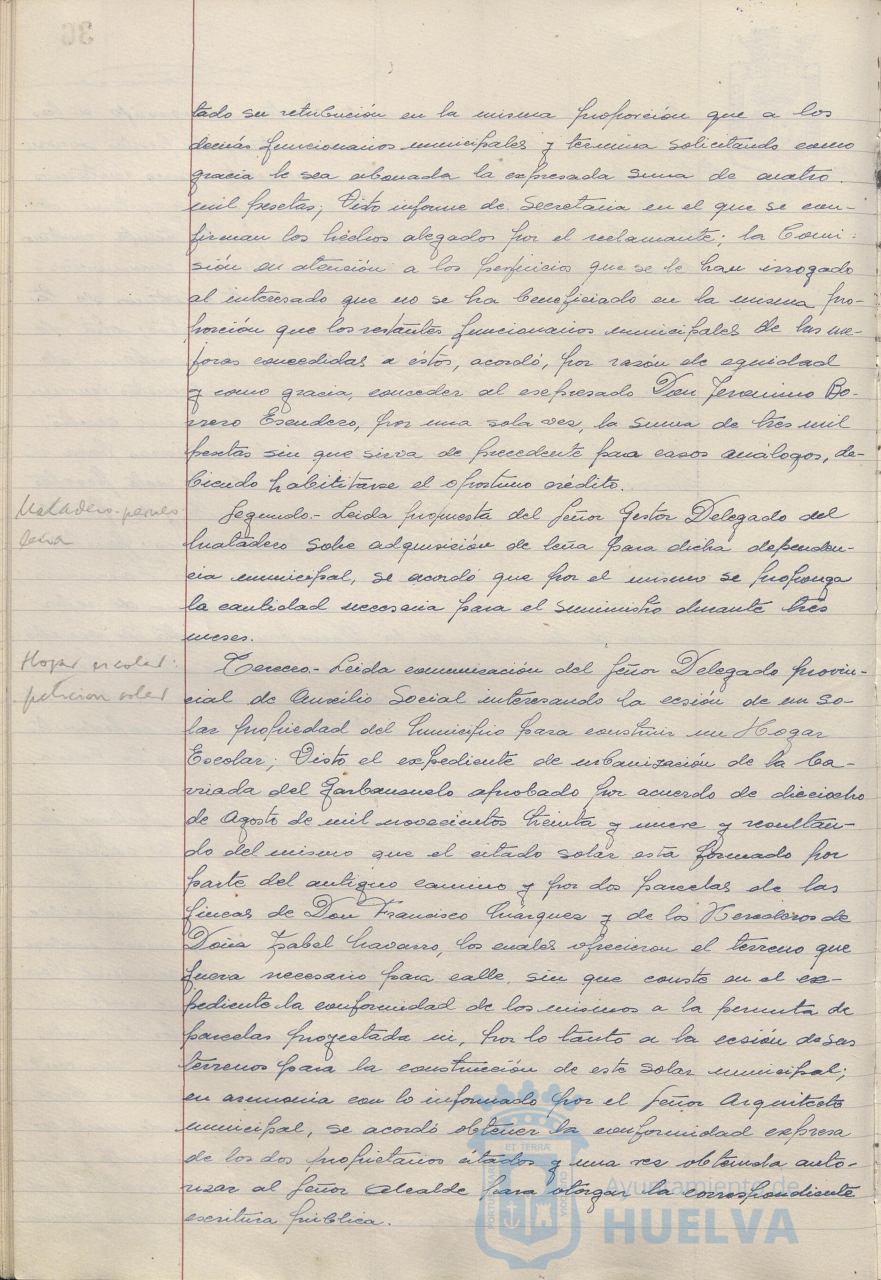 tado su retribución en la misma proporción que a los
demás funcionarios municipales y termina solicitando como
gracia le sea abonada la expresada suma de cuatro
mil pesetas; Visto informe de Secretaria en el que se con-
firman los hechos alegados por el reclamante; la Comi-
sión en atención a los perjuicios que se le han irrogado
al interesado que no se ha beneficiado en la misma pro-
porción que los restantes funcionarios municipales de las me-
joras concedidas a éstos, acordó, por razón de equidad
y como gracia, conceder al expresado Don Jeronimo Bo-
rrero Escudero, por una sola vez, la suma de tres mil
pesetas sin que sirva de precedente para casos análogos, de-
biendo habilitarse el oportuno crédito.
Matadero
leña
Segundo.- Leida propuesta del Señor Gestor Delegado del
Matadero sobre adquisición de leña para dicha dependen-
cia municipal, se acordó que por el mismo se proponga
la cantidad necesaria para el suministro durante tres
meses.
Hogar escolar:
peticion solar
Tercero.- Leida comunicación del Señor Delegado provin-
cial de Auxilio Social interesando la cesión de un so-
lar propiedad del Municipio para construir un Hogar
Escolar; Visto el expediente de urbanización de la Ba-
rriada del Garbanzuelo aprobado por acuerdo de dieciocho
de Agosto de mil novecientos treinta y nueve y resultan-
do del mismo que el citado solar esta formado por
parte del antiguo camino y por dos parcelas de las
fincas de Don Francisco Márquez y de los Herederos de
Doña Isabel Navarro, los cuales ofrecieron el terreno que
fuera necesario para calle, sin que conste en el ex-
pediente la conformidad de los mismos a la permuta de
parcelas proyectada ni, por lo tanto a la cesión de sus
terrenos para la construcción de este solar municipal;
en armonia con lo informado por el Señor Arquitecto
municipal, se acordó obtener la conformidad expresa
de los dos propietarios citados y una vez obtenida auto-
rizar al Señor Alcalde para otorgar la correspondiente
escritura pública.
ET TERRÆ
Ayuntamiento de
HUELVA